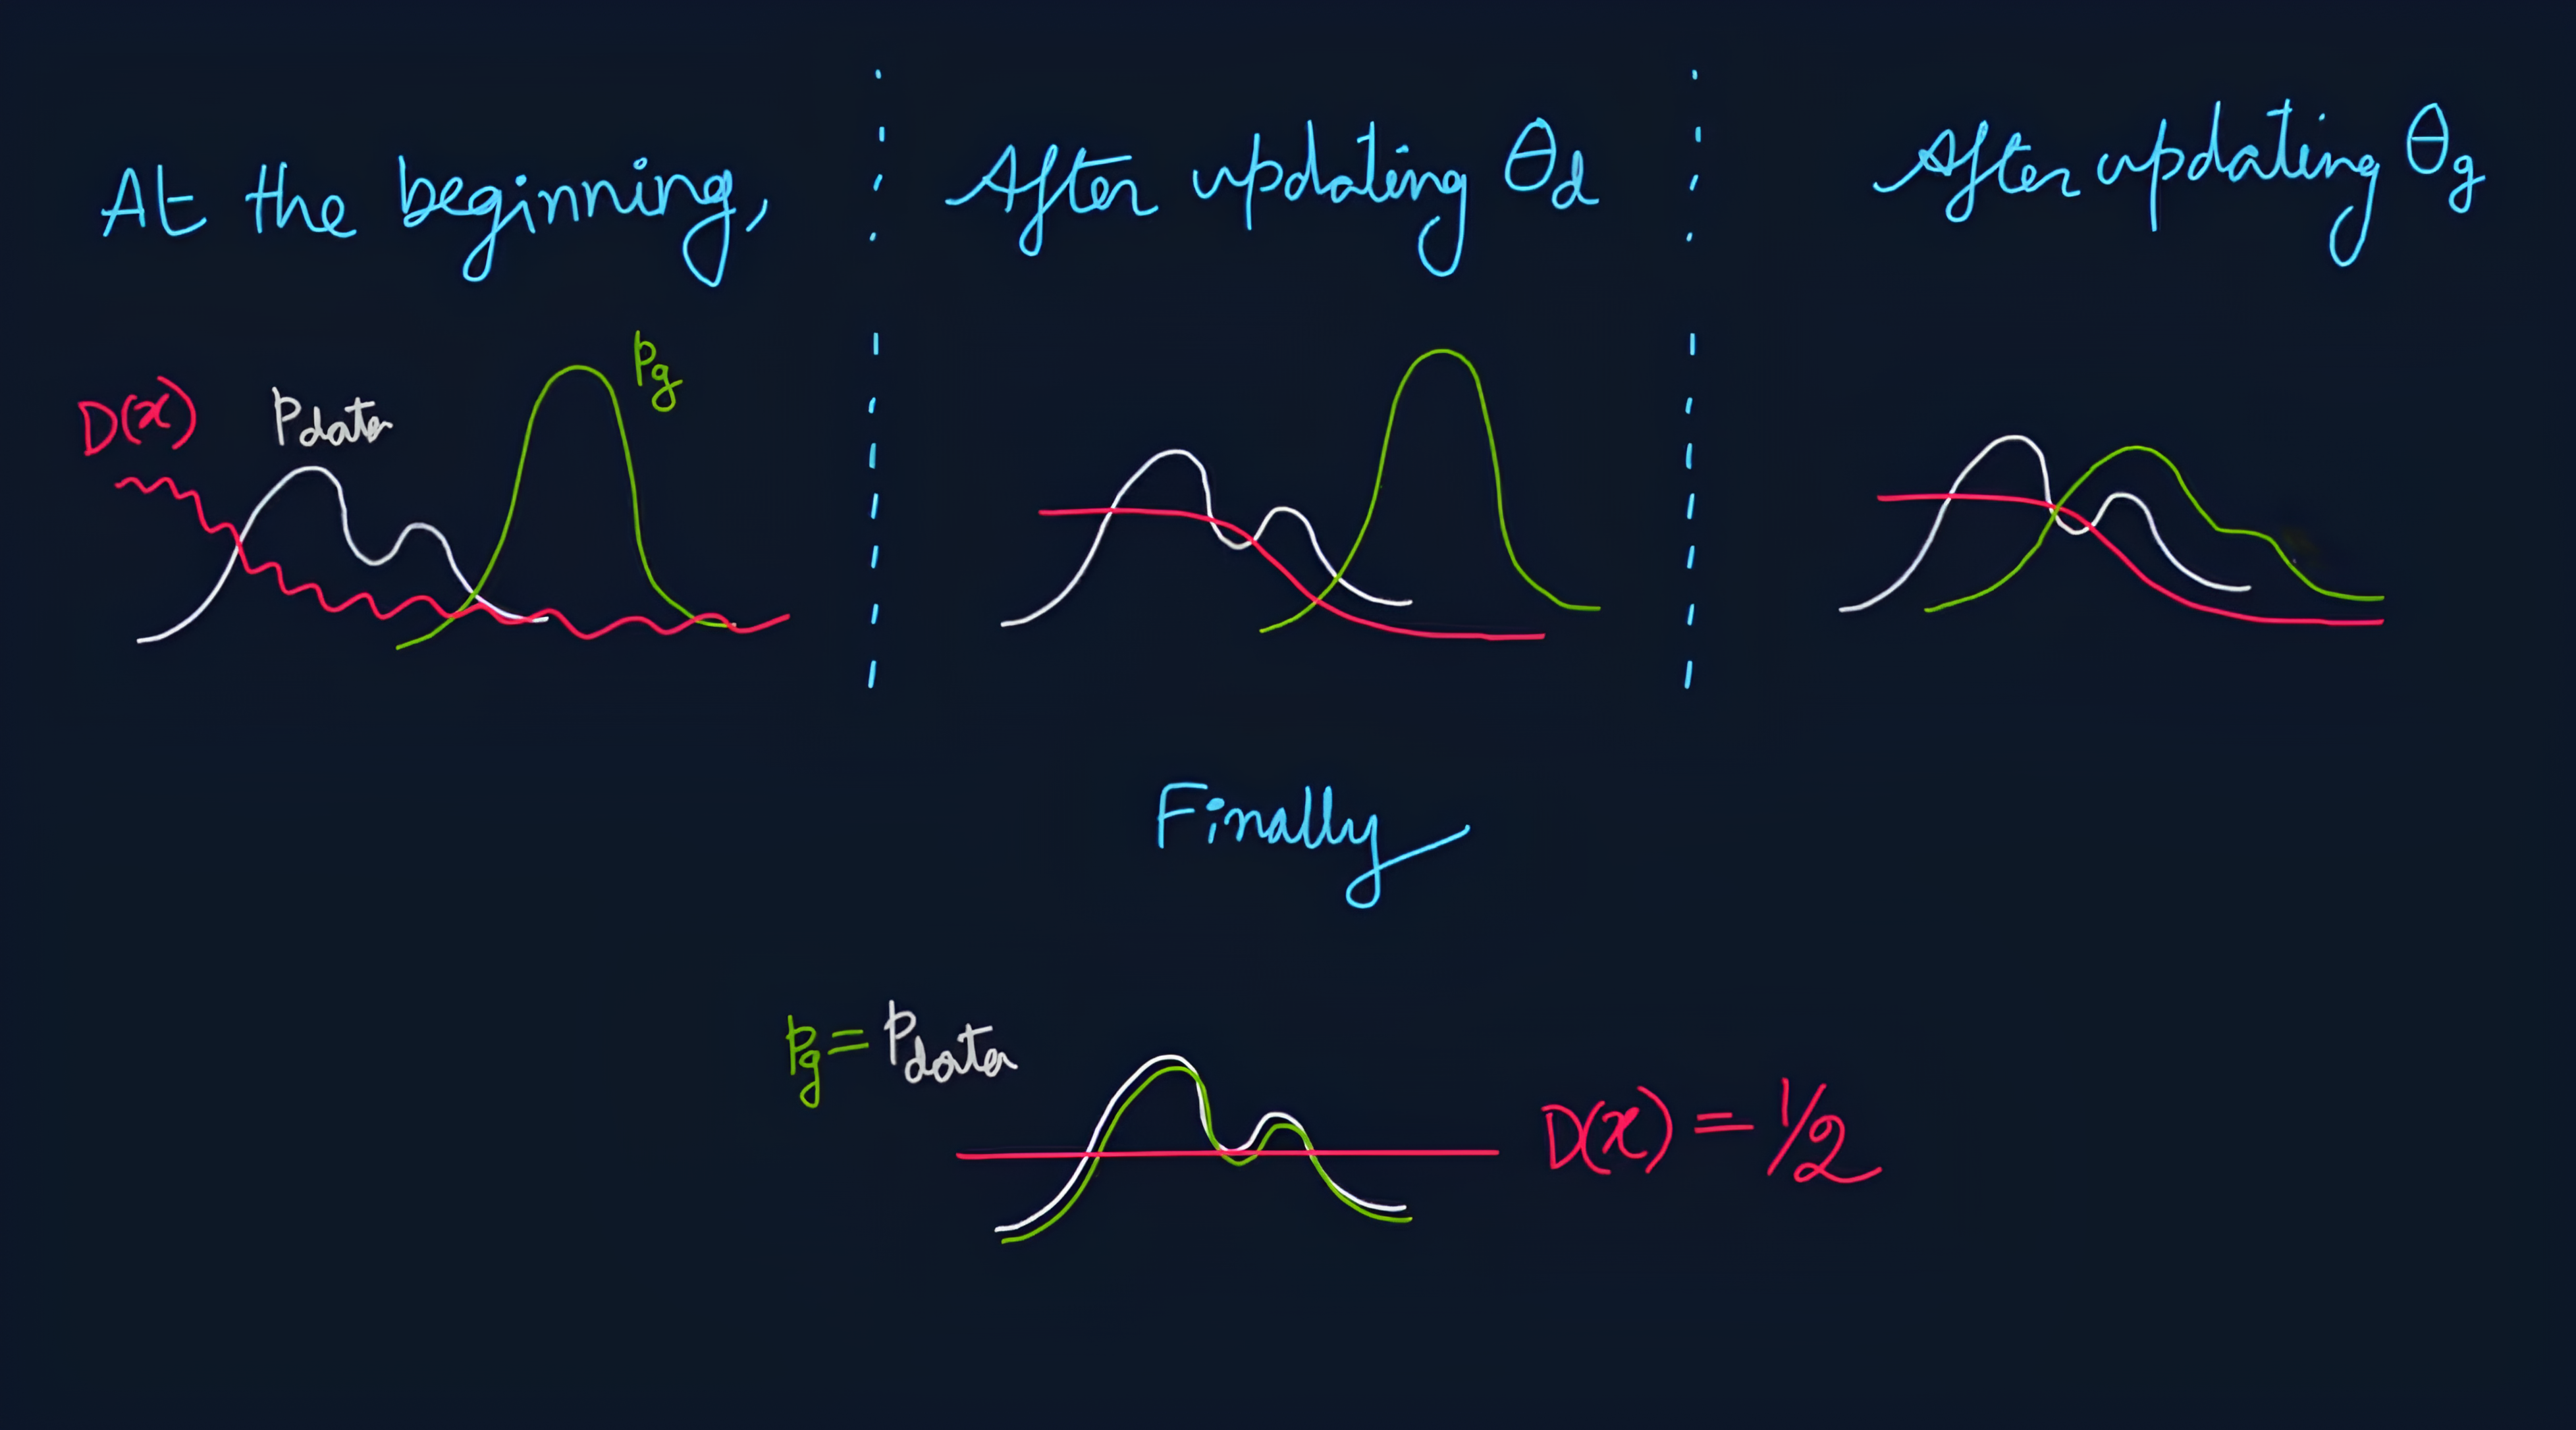 At the beginning,
After updating θd
After updating θg
D(x)
Pdata
Pg
Finally
Pg = Pdata
D(x) = 1/2